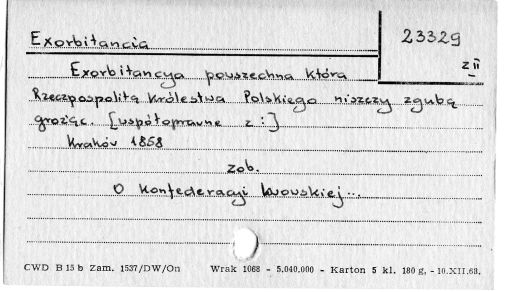 Exorbitancia
23329
z II
Exorbitancya powszechna która
Rzeczpospolitą Królestwa Polskiego niszczy zgubą
grożąc. [współoprawne z :]
Kraków 1858
zob.
O Konfederacyi Lwowskiej...
CWD B 15 b Zam. 1537/DW/On Wrak 1068 - 5.040.000 - Karton 5 kl. 180 g. - 10.XII.68.